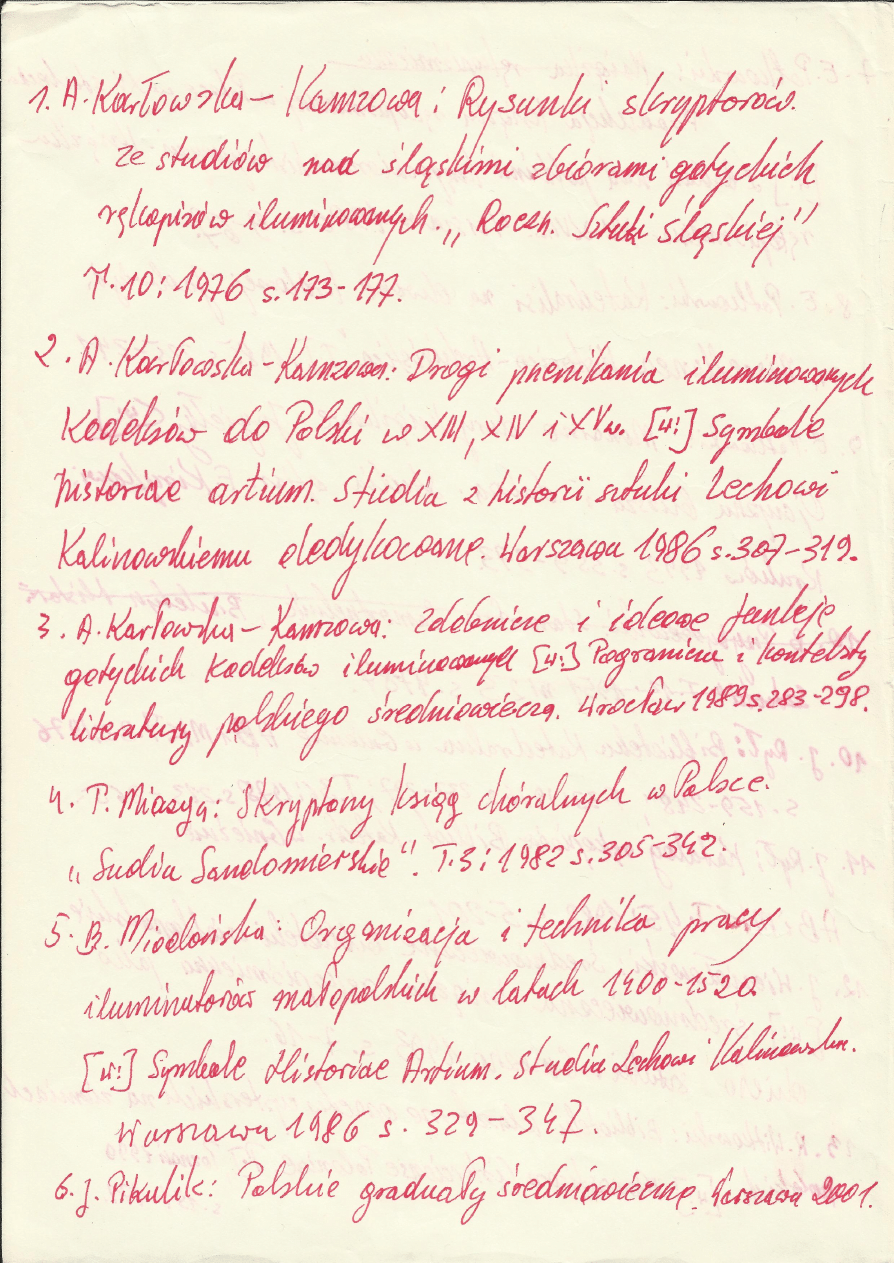 1. A. Karłowska – Kamzowa: Rysunki skryptorów.
Ze studiów nad śląskimi zbiorami gotyckich
rękopisów iluminowanych. „Roczn. Sztuki Śląskiej"
T. 10: 1976 s. 173-177.
2. A. Karłowska-Kamzowa: Drogi przenikania iluminowanych
kodeksów do Polski w XIII, XIV i XV w. [w:] Symbolae
historiae artium. Studia z historii sztuki Lechowi
Kalinowskiemu dedykowane. Warszawa 1986 s. 307-319.
3. A. Karłowska – Kamzowa: Zdobnicze i ideowe funkcje
gotyckich kodeksów iluminowanych [w:] Pogranicza i konteksty
literatury polskiego średniowiecza. Wrocław 1989 s. 283-298.
4. T. Miazga: Skryptorzy ksiąg chóralnych w Polsce.
„Sudia Sandomierskie". T. 3: 1982 s. 305-342.
5. B. Miodońska: Organizacja i technika pracy
iluminatorów małopolskich w latach 1400-1520.
[w:] Symbolae Historiae Artium. Studia Lechowi Kalinowskiem.
Warszawa 1986 s. 329 – 347.
6. J. Pikulik: Polskie graduały średniowieczne. Warszawa 2001.